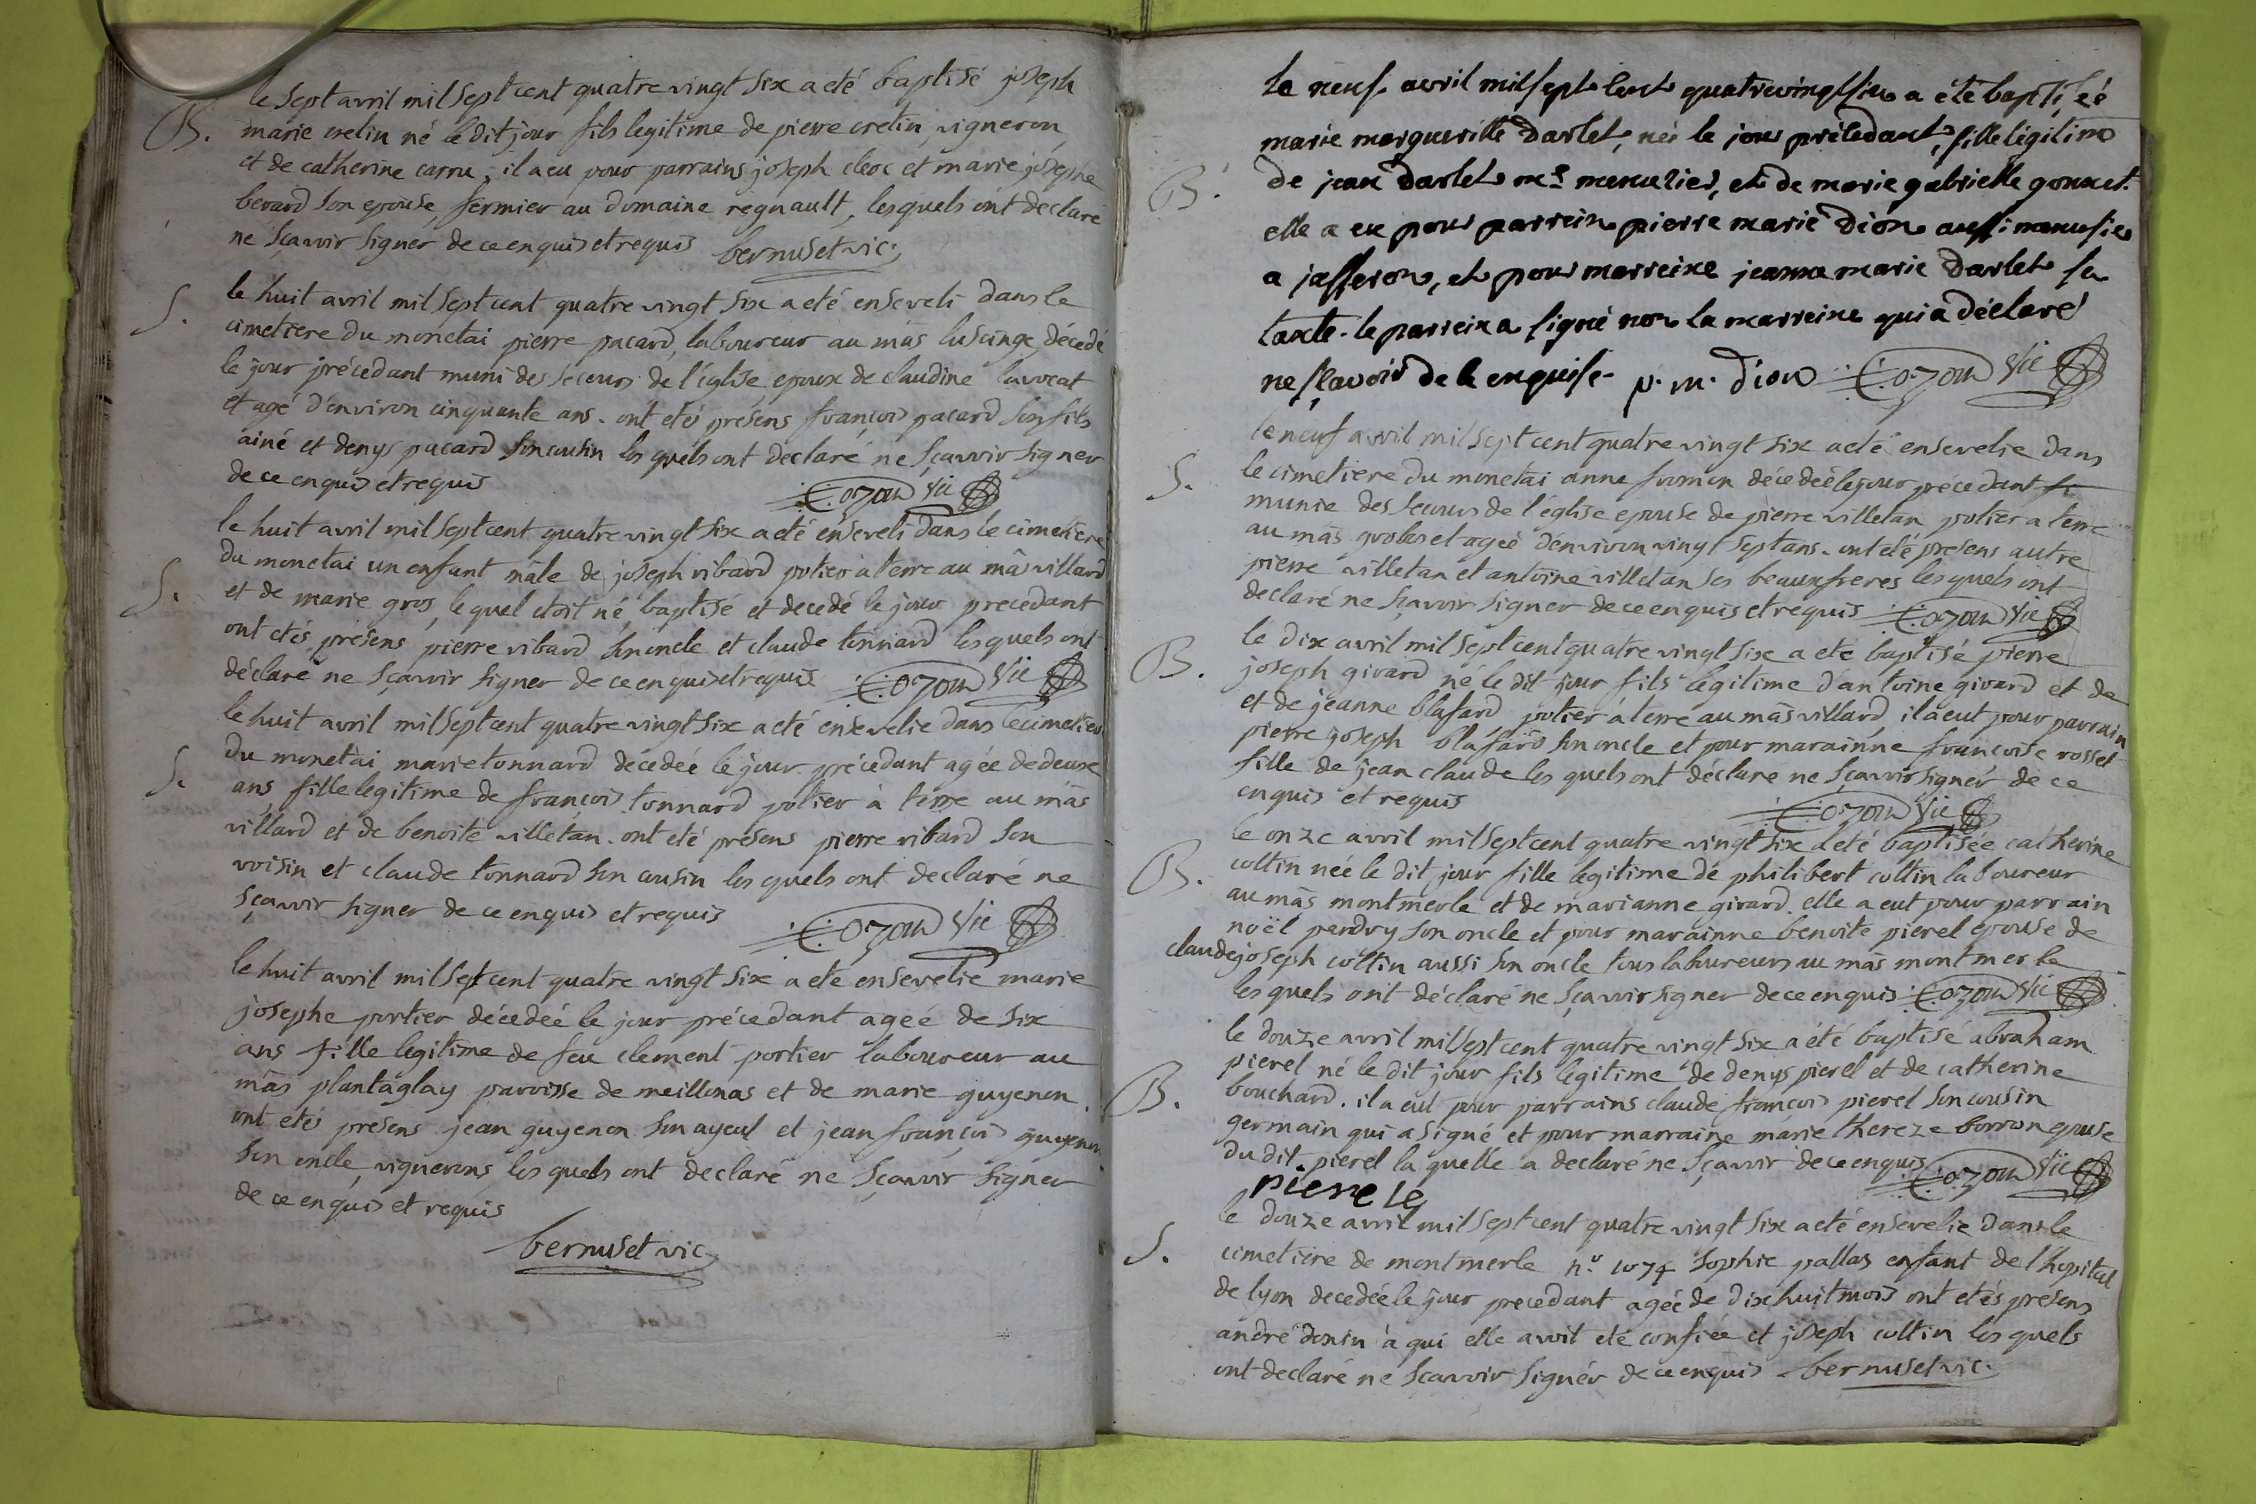 le sept avril mil sept cent quatre vingt six a eté baptisé joseph
B. marie cretin né le dit jour fils legitime de pierre cretin, vigneron,
et de catherine carru, il a eu pour parrains joseph cleoc et marie josephe
berard son epouse, fermier au domaine regnault, lesquels ont declaré
ne sçavoir signer de ce enquis et requis bernuset vic.
le huit avril mil sept cent quatre vingt six a eté enseveli dans le
S. cimetiere du monetai pierre pacard, laboureur au mâs luscinge, décedé
le jour précedant muni des secours de l'église, epoux de claudine lavocat
et agé d'environ cinquante ans. ont etés présens françois pacard son fils
ainé et denys pacard son cousin les quels ont declaré ne sçavoir signer
de ce enquis et requis Cozon Vic
le huit avril mil sept cent quatre vingt six a eté enseveli dans le cimetiere
du monetai un enfant mâle de joseph ribard potier à terre au mâs villard
S. et de marie gros, le quel etoit né, baptisé et decedé le jour precedant
ont etés présens pierre ribard son oncle et claude tonnard les quels ont
déclaré ne sçavoir signer de ce enquis et requis Cozon Vic
le huit avril mil sept cent quatre vingt six a eté ensevelie dans le cimetiere
du monetai marie tonnard décedeé le jour précedant agée de deux
S. ans fille legitime de françois tonnard potier à terre au mâs
villard et de benoite villetan. ont eté présens pierre ribard son
voisin et claude tonnard son cousin les quels ont declaré ne
sçavoir signer de ce enquis et requis Cozon Vic
le huit avril mil sept cent quatre vingt six a eté ensevelie marie
josephe portier décedeé le jour précedant ageé de six
ans fille legitime de feu clement portier laboureur au
mâs plantaglay paroisse de meillonas et de marie guyenon
ont etés présens jean guyenon son ayeul et jean françois guyenon
son oncle, vignerons, les quels ont declaré ne sçavoir signer
de ce enquis et requis
bernuset vic.
le neuf avril mil sept cent quatrevingt six a été baptiseé
marie marguerille Darlet, née le jour précedant, fille légitime
B. de jean Darlet me menuzier, et de marie gabrielle gonnet.
elle a eu pour parrein pierre marie Dion aussi menusier
a jasseron, et pour marreine jeanne marie Darlet sa
tante. le parrein a signé non la marreine qui a déclaré
ne sçavoir de le enquise. p. m. dion Cozon Vic
le neuf avril mil sept cent quatre vingt six a eté ensevelie dans
S. le cimetiere du monetai anne froman décedeé le jour précedant
munie des secours de l'église epouse de pierre villetan potier a terre
au mâs grobos et ageé d'environ vingt sept ans. ont eté présens autre
pierre villetan et antoine villetan ses beaux freres les quels ont
declaré ne sçavoir signer de ce enquis et requis Cozon Vic
le dix avril mil sept cent quatre vingt six a ete baptisé pierre
B. joseph girard né le dit jour fils legitime d'antoine girard et de
et de jeanne blafard potier à terre au mâs villard, il a eut pour parrain
pierre joseph blafard son oncle et pour marainne françoise rosset
fille de jean claude les quels ont déclare ne sçavoir signér de ce
enquis et requis Cozon Vic
le onze avril mil sept cent quatre vingt six a eté baptisée catherine
B. collin née le dit jour fille legitime de philibert collin laboureur
au mâs montmerle et de marianne girard. elle a eut pour parrain
noël perdry son oncle et pour marainne benoite pierel epouse de
claude joseph collin aussi son oncle tous laboureurs au mâs montmerle
les quels ont déclaré ne sçavoir signer de ce enquis Cozon Vic
le douze avril mil sept cent quatre vingt six a été baptisé abraham
pierel né le dit jour fils legitime de denys pierel et de catherine
B. bouchard. il a eut pour parrains claude françois pierel son cousin
germain qui a signé et pour marraine marie thereze borron epouse
du dit pierel la quelle a declaré ne sçavoir de ce enquis Cozon Vic
pierele
le douze avril mil sept cent quatre vingt six a eté ensevelie dans le
S. cimetiere de montmerle n.o 1074 sophie pallas enfant de l'hopital
de lyon decedeé le jour precedant ageé de dix huit mois ont etés présens
andré donin à qui elle avoit eté confiée et joseph collin les quels
ont declaré ne sçavoir signér de ce enquis bernuset vic.